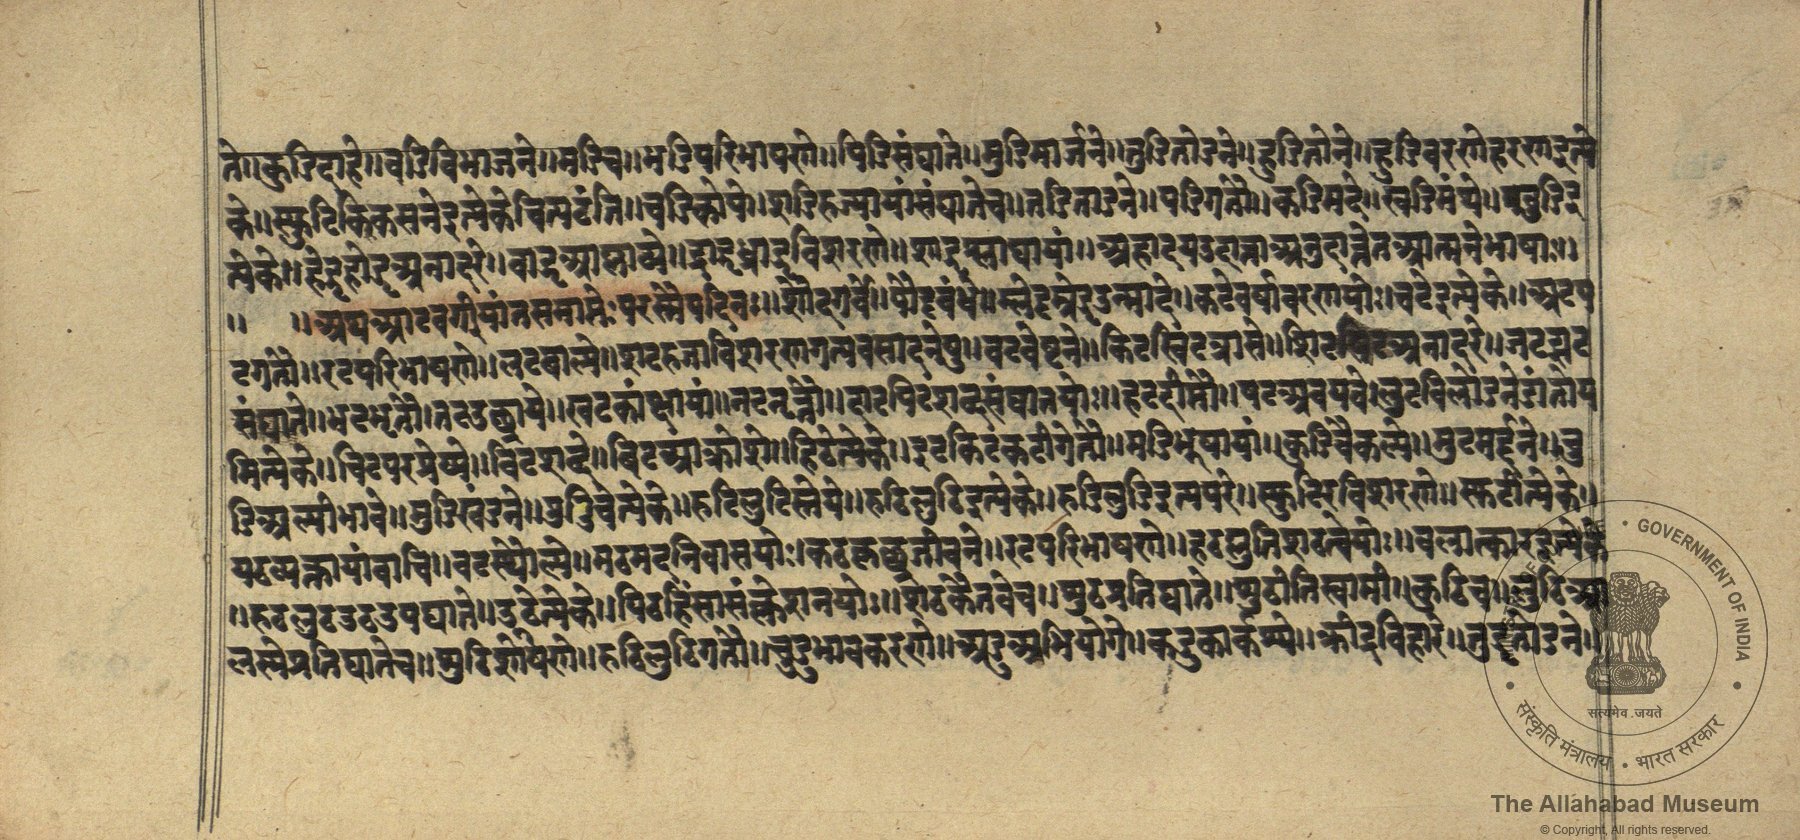 ते॥कुडिदाहे॥वडिविभाजने॥मडिच॥भडिपरिभाषणे॥पिडिसंघाते॥मुडिमार्जने॥तुडितोडने॥हुडितोने॥हुडिवरणेहरणइत्ये
के॥स्फुटिविकसनेइत्येकेचित्पटंति॥चडिकोपे॥शडिरुजायांसंघातेच॥तडिताडने॥पडिगतौ॥कडिमदे॥खडिमंथे॥खुडिइ
त्येके॥हेडृहोडृअनादरे॥वाडृआप्लाव्ये॥द्राडृध्राडृविशरणे॥शाडृश्लाघायां॥अट्टादयउदात्ताअनुदात्तेतआत्मनेभाषाः॥
॥ ॥अथआटवर्गीयांतसमाप्तेःपरस्मैपदिनः॥शौटृगर्वे॥यौटृबंधे॥म्लेटृम्रेडृउन्मादे॥कटेवर्षावरणयोः॥चटेइत्येके॥अटप
टगतौ॥रटपरिभाषणे॥लटबाल्ये॥शटरुजाविशरणगत्यवसादनेषु॥वटवेष्टने॥किटखिटत्रासे॥शिटषिटअनादरे॥जटझट
संघाते॥भटभृतौ॥तटउछ्राये॥खटकांक्षायां॥नटनृत्तौ॥पिटशब्दसंघातयोः॥हटदीप्तौ॥षटअवयवे॥लुटविलोडनेडांतोय
मित्येके॥चिटपरप्रेष्ये॥विटशब्दे॥बिटआक्रोशे॥हिटेत्येके॥इटकिटकटीगतौ॥मडिभूषायां॥कुडिवैकल्ये॥मुटमर्दने॥चु
डिअल्पीभावे॥मुडिखंडने॥पुडिचेत्येके॥रुटिलुटिस्तेये॥रुठिलुठिइत्येके॥रुडिलुडिइत्यपरे॥स्फुटिरविशरणे॥स्फटीत्येके॥
पठव्यक्तायांवाचि॥वटस्थौल्ये॥मठमदनिवासयोः॥कठकृच्छ्रजीवने॥रटपरिभाषणे॥हठप्लुतिशठत्वयोः॥बलात्कारइत्येके
॥रुठलुठउठउपघाते॥उठेत्येके॥पिठहिंसासंक्लेशनयोः॥शठकैतवेच॥शुठप्रतिघाते॥शुठीतिस्वामी॥कुठिच॥लुठिआ
लस्येप्रतिघातेच॥शुठिशोषणे॥रुठिलुठिगतौ॥चुड्डभावकरणे॥अड्डअभियोगे॥कड्डकार्कश्ये॥क्रीडृविहारे॥तुडृतोडने॥
सत्यमेव जयते
GOVERNMENT OF INDIA
संस्कृति मंत्रालय • भारत सरकार
The Allahabad Museum
© Copyright, All rights reserved.